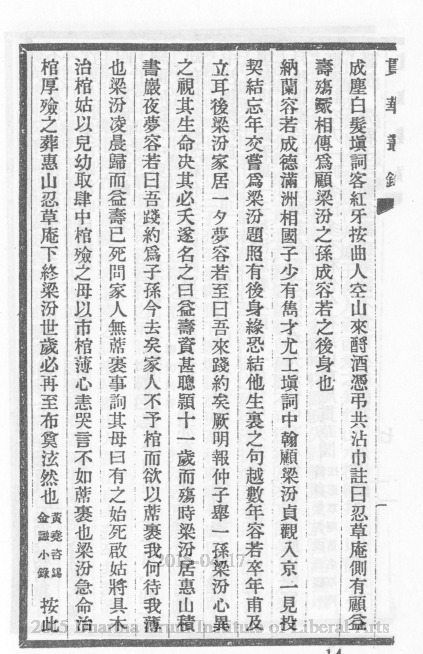 貫華叢錄
成塵白髮塡詞客紅牙按曲人空山來酹酒憑弔共沾巾註曰忍草庵側有顧益
壽殤瘞相傳爲顧梁汾之孫成容若之後身也
納蘭容若成德滿洲相國子少有雋才尤工塡詞中翰顧梁汾貞觀入京一見投
契結忘年交嘗爲梁汾題照有後身緣恐結他生裏之句越數年容若卒年甫及
立耳後梁汾家居一夕夢容若至曰吾來踐約矣厥明報仲子舉一孫梁汾心異
之視其生命決其必夭遂名之曰益壽資甚聰穎十一歲而殤時梁汾居惠山積
書巖夜夢容若曰吾踐約爲子孫今去矣家人不予棺而欲以蓆裹我何待我薄
也梁汾凌晨歸而益壽已死問家人無蓆裹事詢其母曰有之始死啟姑將具木
治棺姑以兒幼取肆中棺殮之母以市棺薄心恚哭言不如蓆裹也梁汾急命治
棺厚殮之葬惠山忍草庵下終梁汾世歲必再至布奠泫然也黃堯咨錫金識小錄按此
14